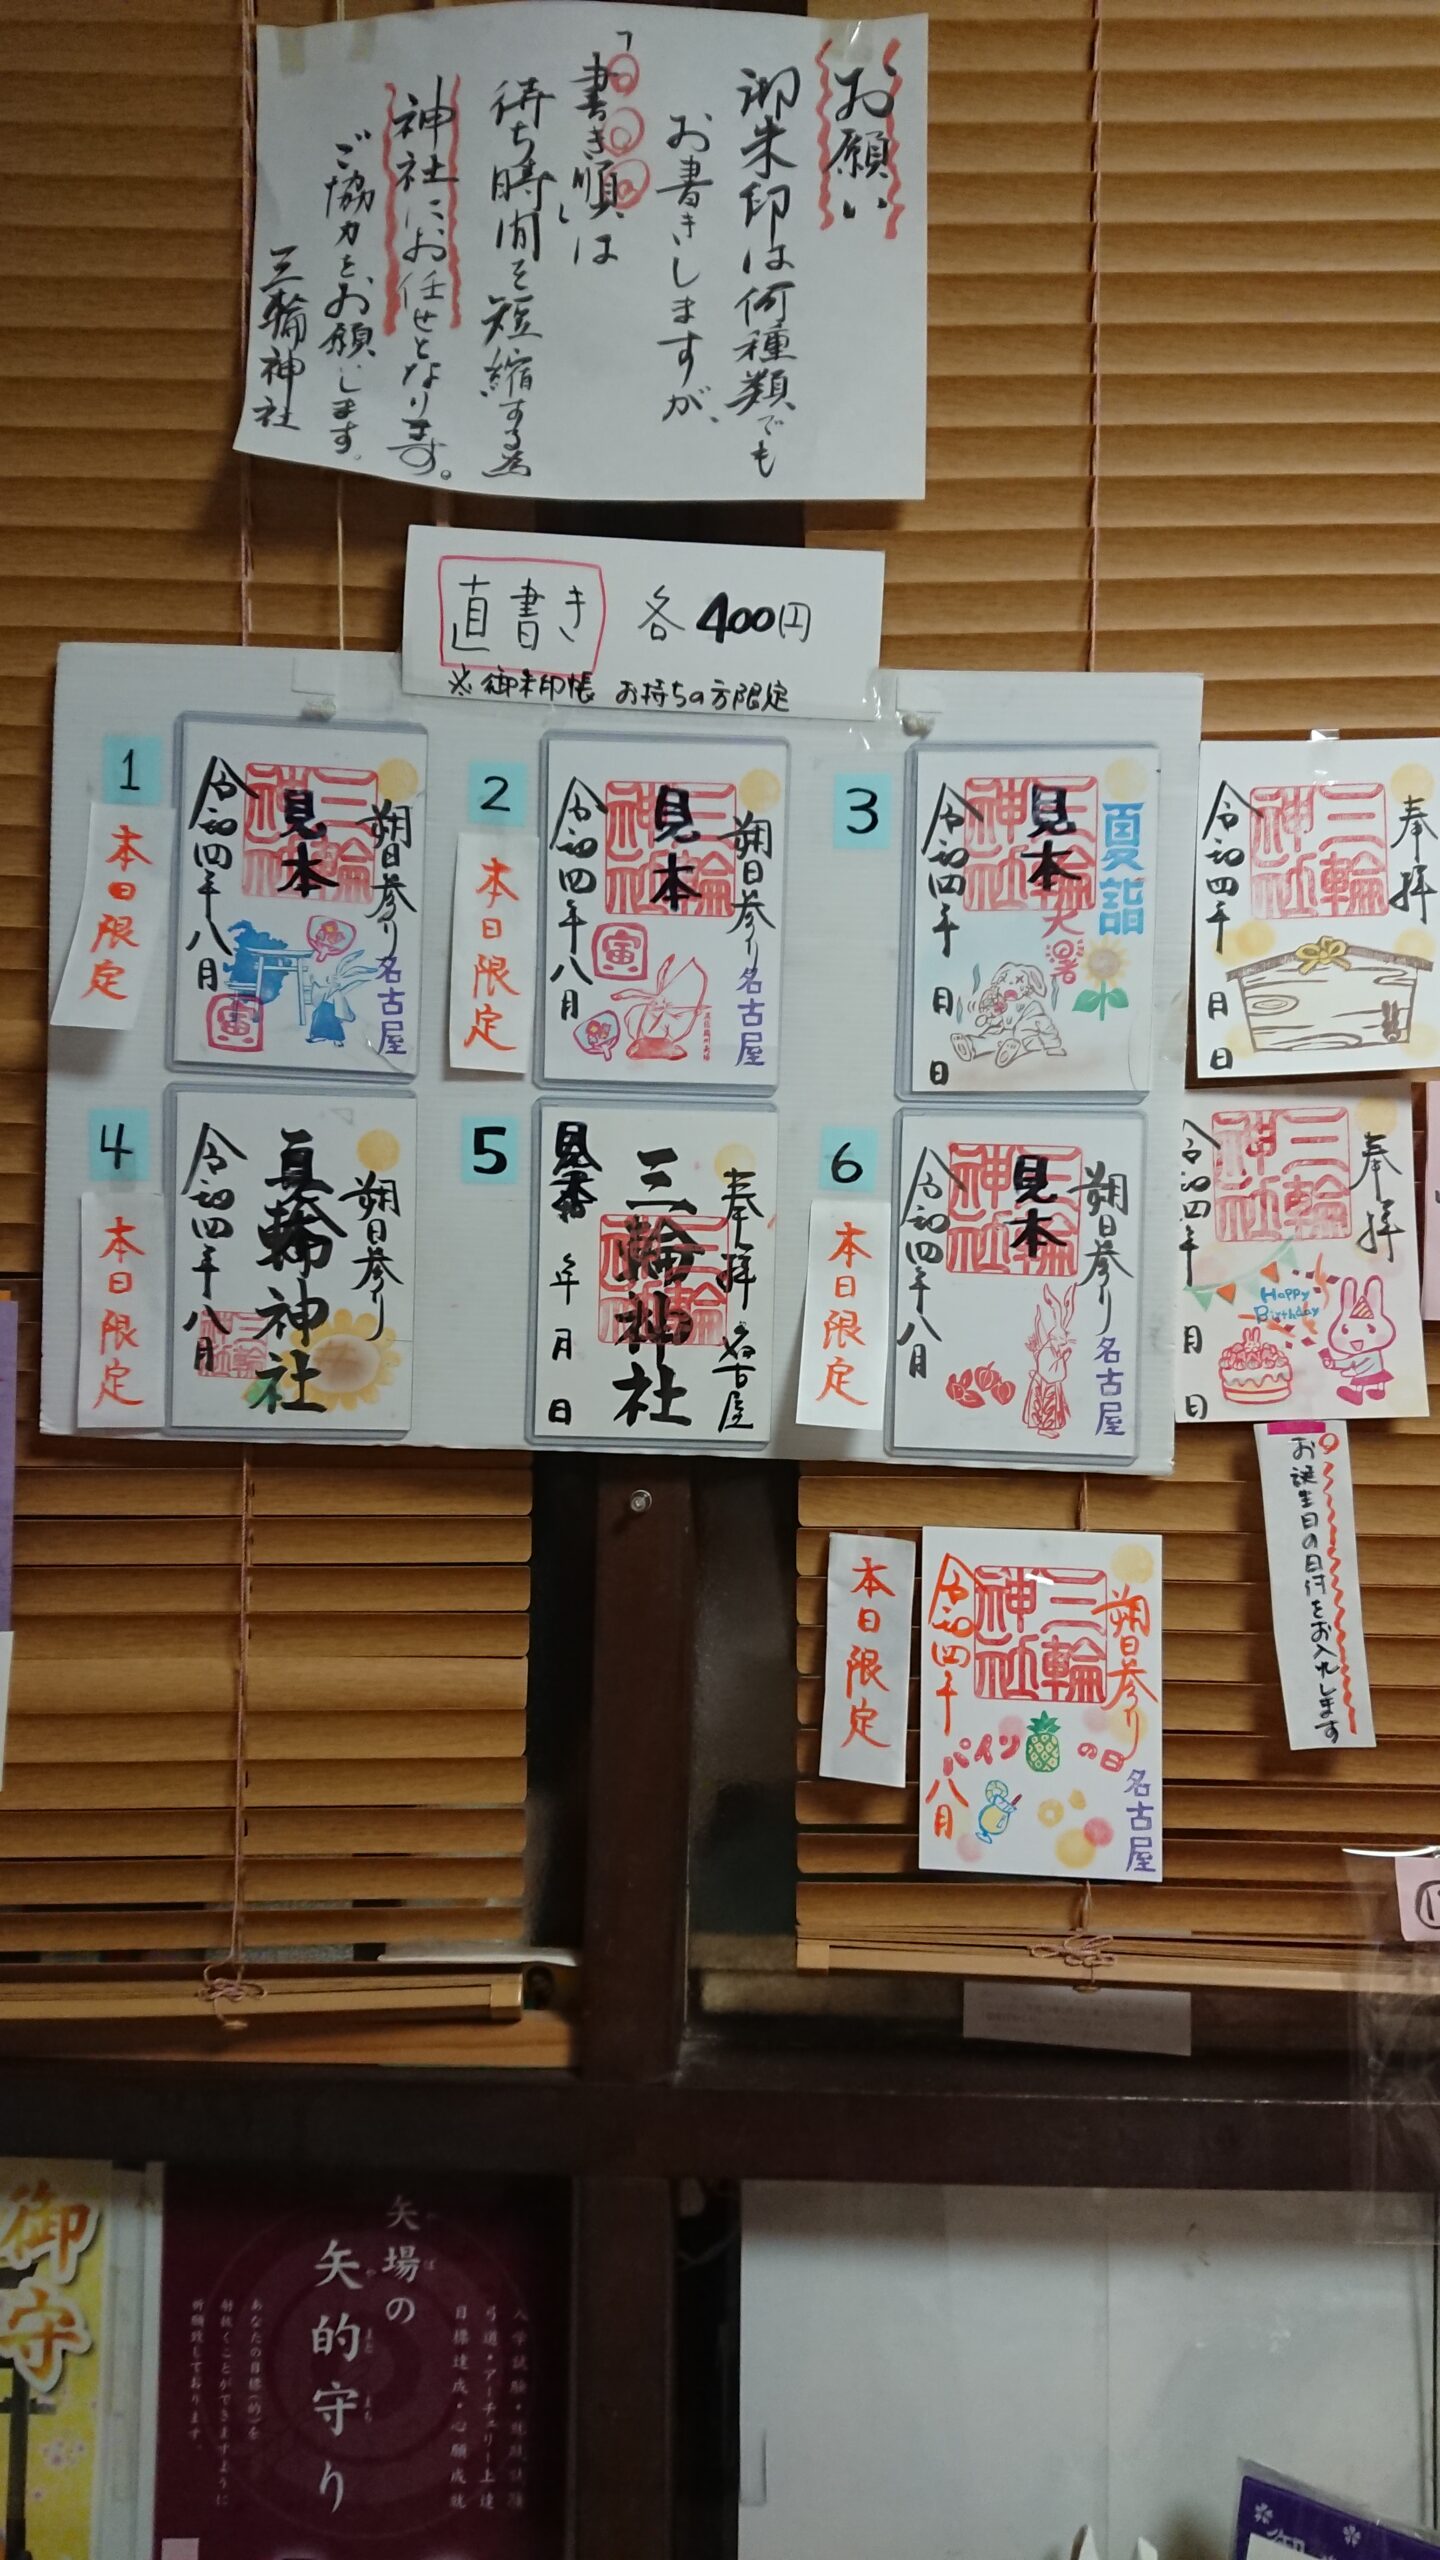 お願い
御朱印は何種類でも
お書きしますが、
「書き順」は
待ち時間を短縮する為
神社にお任せとなります。
ご協力を、お願いします。
三輪神社
直書き 各400円
※御朱印帳 お持ちの方限定
1
本日限定
朔日参り
名古屋
三輪神社
見本
寅
令和四年八月
2
本日限定
朔日参り
名古屋
三輪神社
見本
寅
令和四年八月
3
夏詣
三輪神社
見本
大暑
令和四年 月 日
奉拝
三輪神社
令和四年 月 日
4
本日限定
朔日参り
神社
令和四年八月
5
奉拝
名古屋
三輪神社
年 月 日
6
本日限定
朔日参り
名古屋
三輪神社
見本
令和四年八月
奉拝
三輪神社
Happy
Birthday
令和四年 月 日
お誕生日の日付をお入れします
本日限定
朔日参り
名古屋
三輪神社
パインの日
令和四年八月
御守
矢場の
矢的守り
や ば
や まと まも
弓道・アーチェリー上達
目標達成・心願成就
あなたの目標(的)を
射抜くことができますように
祈願致しております。